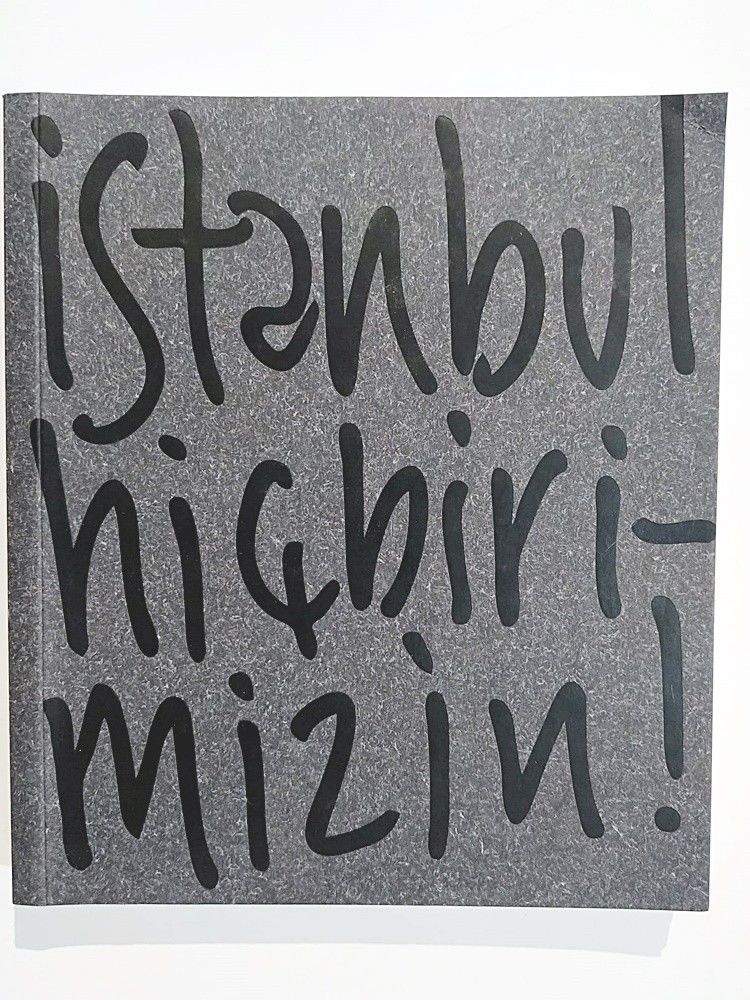 istanbul
hiçbiri-
mizin!